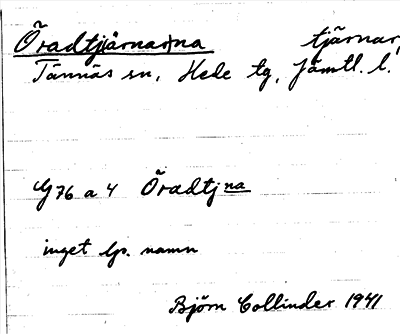 Öradtjärnarna tjärnar,
Tännäs sn, Hede tg, Jämtl. l.
G 76 a 4 Öradtjna
inget lp. namn
Björn Collinder 1941